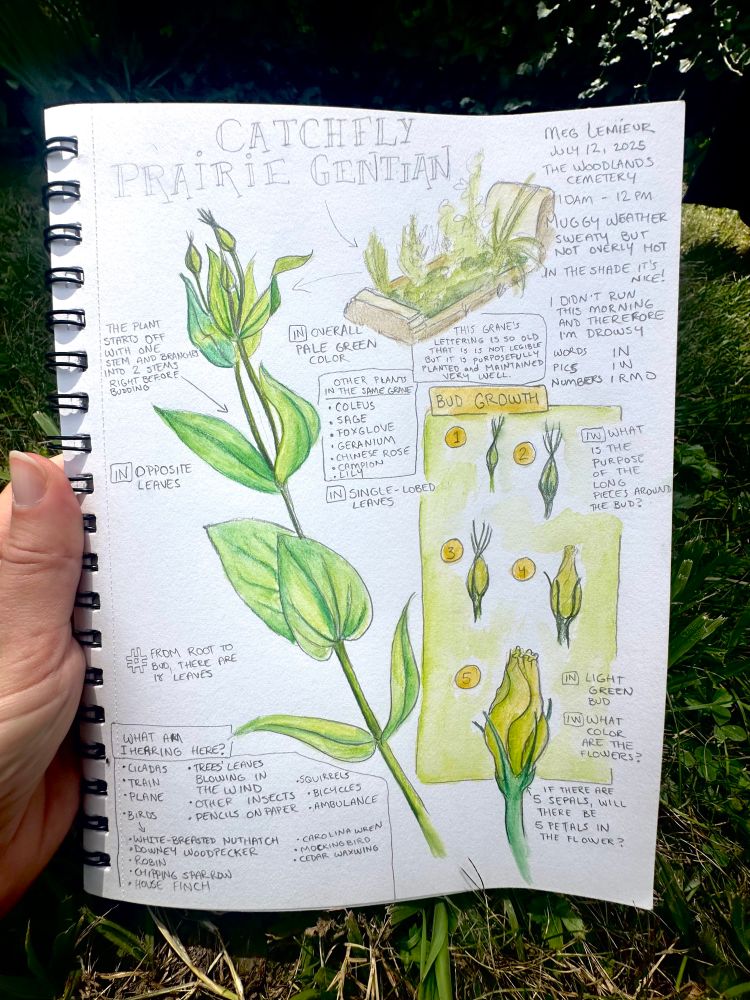 CATCHFLY
PRAIRIE GENTIAN
MEG LEMIEUR
JULY 12, 2025
THE WOODLANDS
CEMETERY
10AM - 12 PM
MUGGY WEATHER
SWEATY BUT
NOT OVERLY HOT
IN THE SHADE IT'S
NICE!
I DIDN'T RUN
THIS MORNING
AND THEREFORE
I'M DROWSY
WORDS IN
PICS IW
NUMBERS IRMO
THE PLANT
STARTS OFF
WITH ONE
STEM AND BRANCHES
INTO 2 STEMS
RIGHT BEFORE
BUDDING
IN OVERALL
PALE GREEN
COLOR
THIS GRAVE'S
LETTERING IS SO OLD
THAT IS IS NOT LEGIBLE
BUT IT IS PURPOSEFULLY
PLANTED and MAINTAINED
VERY WELL.
OTHER PLANTS
IN THE SAME GRAVE
• COLEUS
• SAGE
• FOXGLOVE
• GERANIUM
• CHINESE ROSE
• CAMPION
• LILY
IN OPPOSITE
LEAVES
IN SINGLE-LOBED
LEAVES
# FROM ROOT TO
BUD, THERE ARE
18 LEAVES
BUD GROWTH
1
2
3
4
5
IW WHAT
IS THE
PURPOSE
OF THE
LONG
PIECES AROUND
THE BUD?
IN LIGHT
GREEN
BUD
IW WHAT
COLOR
ARE THE
FLOWERS?
IF THERE ARE
5 SEPALS, WILL
THERE BE
5 PETALS IN
THE FLOWER?
WHAT AM
I HEARING HERE?
• CICADAS
• TRAIN
• PLANE
• BIRDS
• TREES' LEAVES
BLOWING IN
THE WIND
• OTHER INSECTS
• PENCILS ON PAPER
• SQUIRRELS
• BICYCLES
• AMBULANCE
• WHITE-BREASTED NUTHATCH
• DOWNEY WOODPECKER
• ROBIN
• CHIPPING SPARROW
• HOUSE FINCH
• CAROLINA WREN
• MOCKINGBIRD
• CEDAR WAXWING